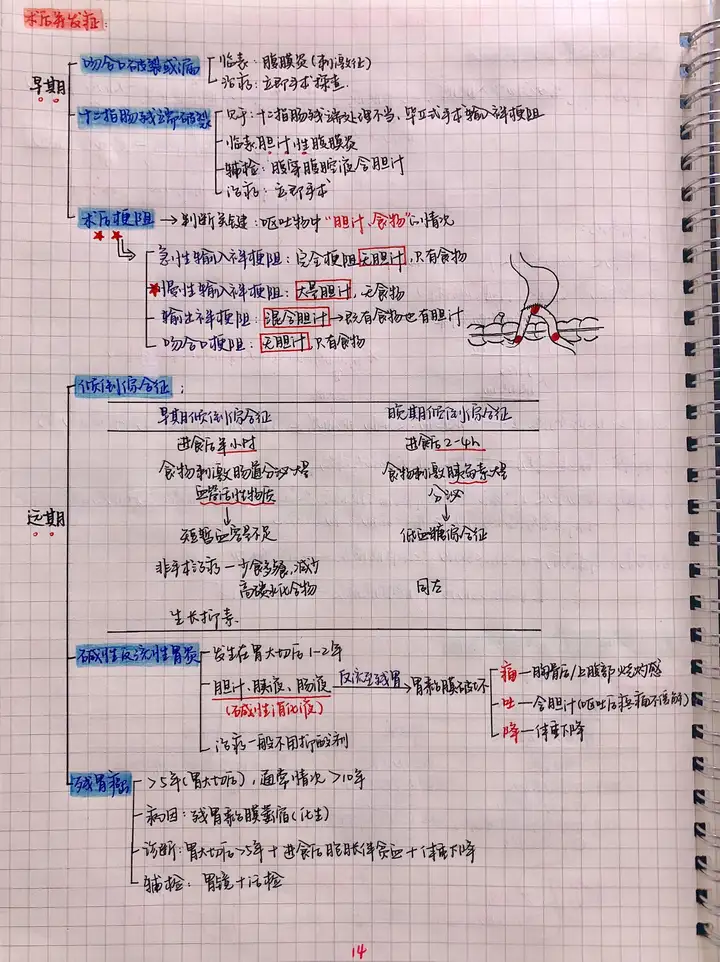 术后并发症:
早期
吻合口破裂或漏
临表: 腹膜炎(刺激征)
治疗: 立即手术探查.
十二指肠残端破裂
见于: 十二指肠残端处理不当, 毕Ⅱ式手术输入袢梗阻
临表: 胆汁性腹膜炎
辅检: 腹穿腹腔液含胆汁
治疗: 立即手术
术后梗阻 → 判断关键: 呕吐物中"胆汁、食物"的情况
急性输入袢梗阻: 完全梗阻无胆汁, 只有食物
慢性输入袢梗阻: 大量胆汁, 无食物
输出袢梗阻: 混合胆汁 → 既有食物也有胆汁
吻合口梗阻: 无胆汁, 只有食物
远期
倾倒综合征:
早期倾倒综合征 晚期倾倒综合征
进食后半小时 进食后2-4h
食物刺激肠道分泌大量 食物刺激胰岛素大量
血管活性物质 分泌
↓ ↓
短暂血容量不足 低血糖综合征
非手术治疗—少食多餐, 减少
高碳水化合物 同左
生长抑素.
碱性反流性胃炎
发生在胃大切后1-2年
胆汁、胰液、肠液 反流至残胃 → 胃黏膜破坏
(碱性消化液)
痛—胸骨后/上腹部烧灼感
吐—含胆汁(呕吐后疼痛不缓解)
降—体重下降
治疗一般不用抑酸剂
残胃癌
>5年(胃大切后), 通常情况>10年
病因: 残胃黏膜萎缩(化生)
诊断: 胃大切后>5年+进食后饱胀伴贫血+体重下降
辅检: 胃镜+活检
14